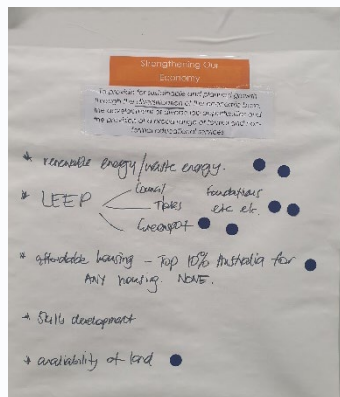 Strengthening Our
Economy
To provide for sustainable and planned growth
through the diversification of the economic base,
the development of diverse job opportunities and
the provision of a broad range of formal and non-
formal educational services
* renewable energy/waste energy.
* LEEP
Council
TAFEs
Greenspot
Foundations
etc etc.
* affordable housing - Top 10% Australia for
ANY housing. NONE.
* Skills development
* availability of land